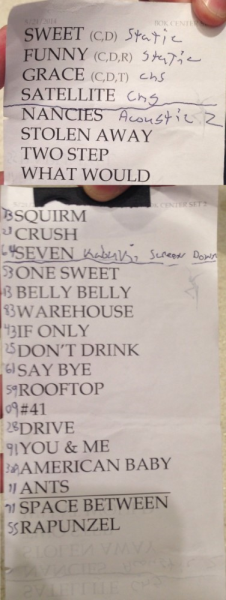 BOK CENTER
SWEET (C,D) Static
FUNNY (C,D,R) Static
GRACE (C,D,T) chs
SATELLITE Chg
NANCIES Acoustic 2
STOLEN AWAY
TWO STEP
WHAT WOULD
BOK CENTER SET 2
SQUIRM
CRUSH
SEVEN Screen Down
53 ONE SWEET
BELLY BELLY
93 WAREHOUSE
43 IF ONLY
25 DON'T DRINK
61 SAY BYE
59 ROOFTOP
09 #41
28 DRIVE
91 YOU & ME
AMERICAN BABY
11 ANTS
71 SPACE BETWEEN
55 RAPUNZEL